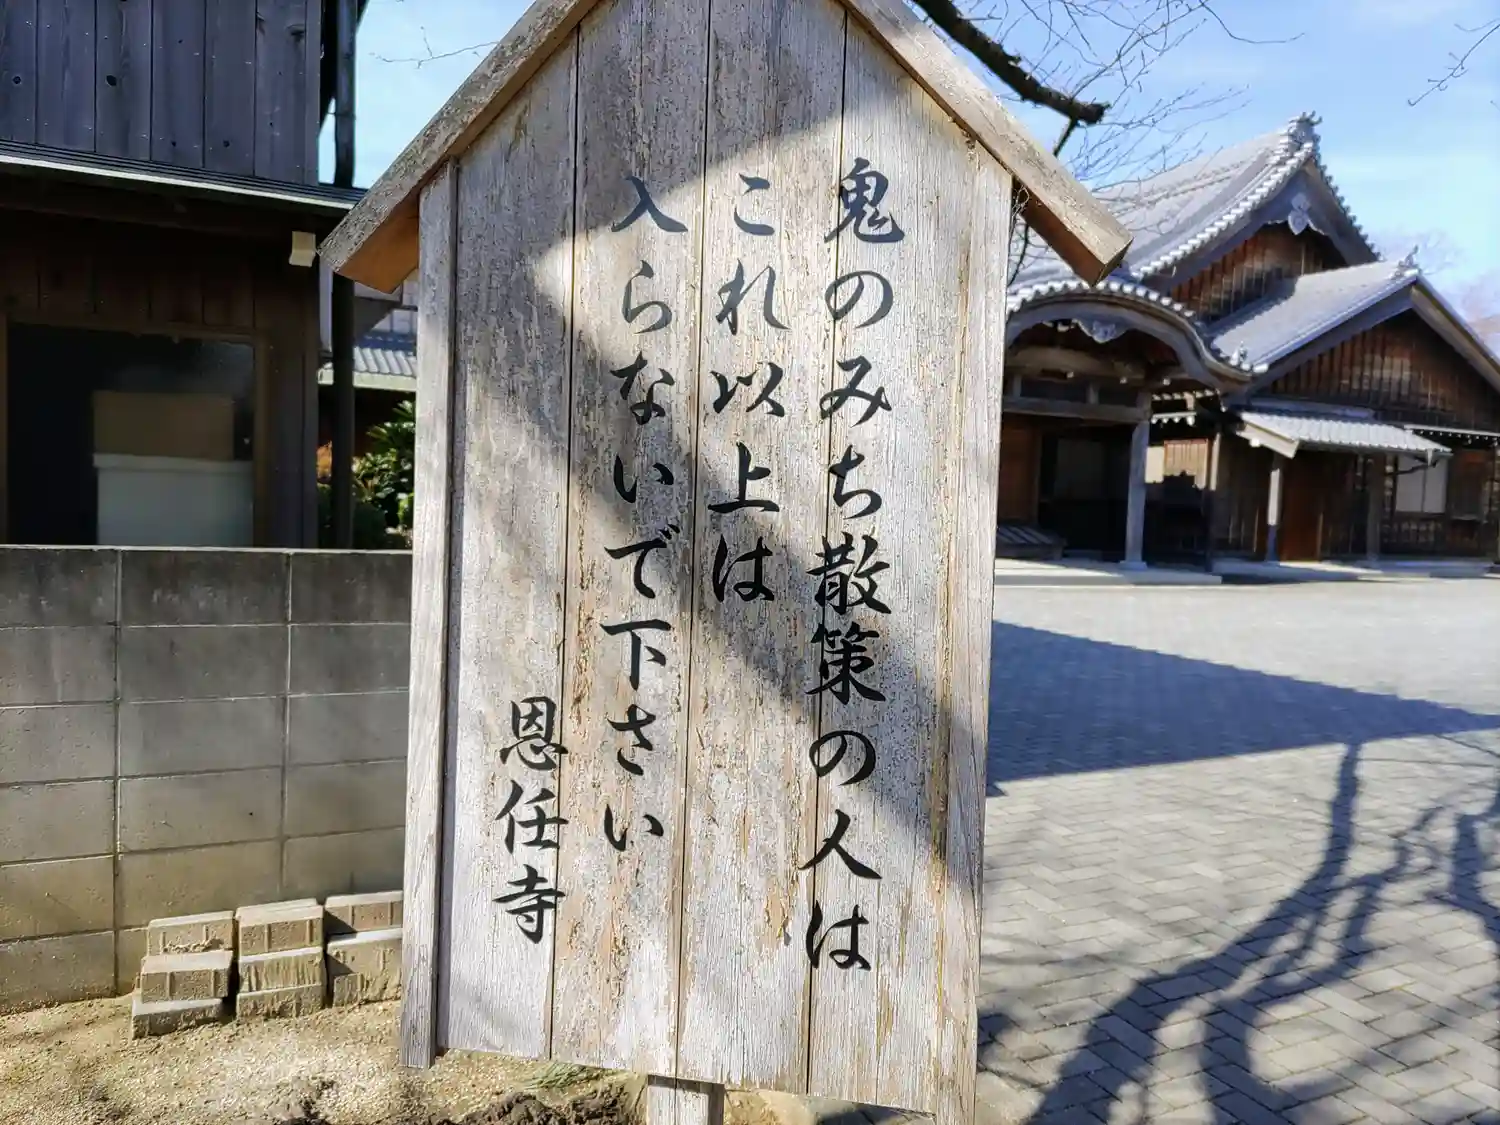 鬼のみち散策の人は
これ以上は
入らないで下さい
恩任寺